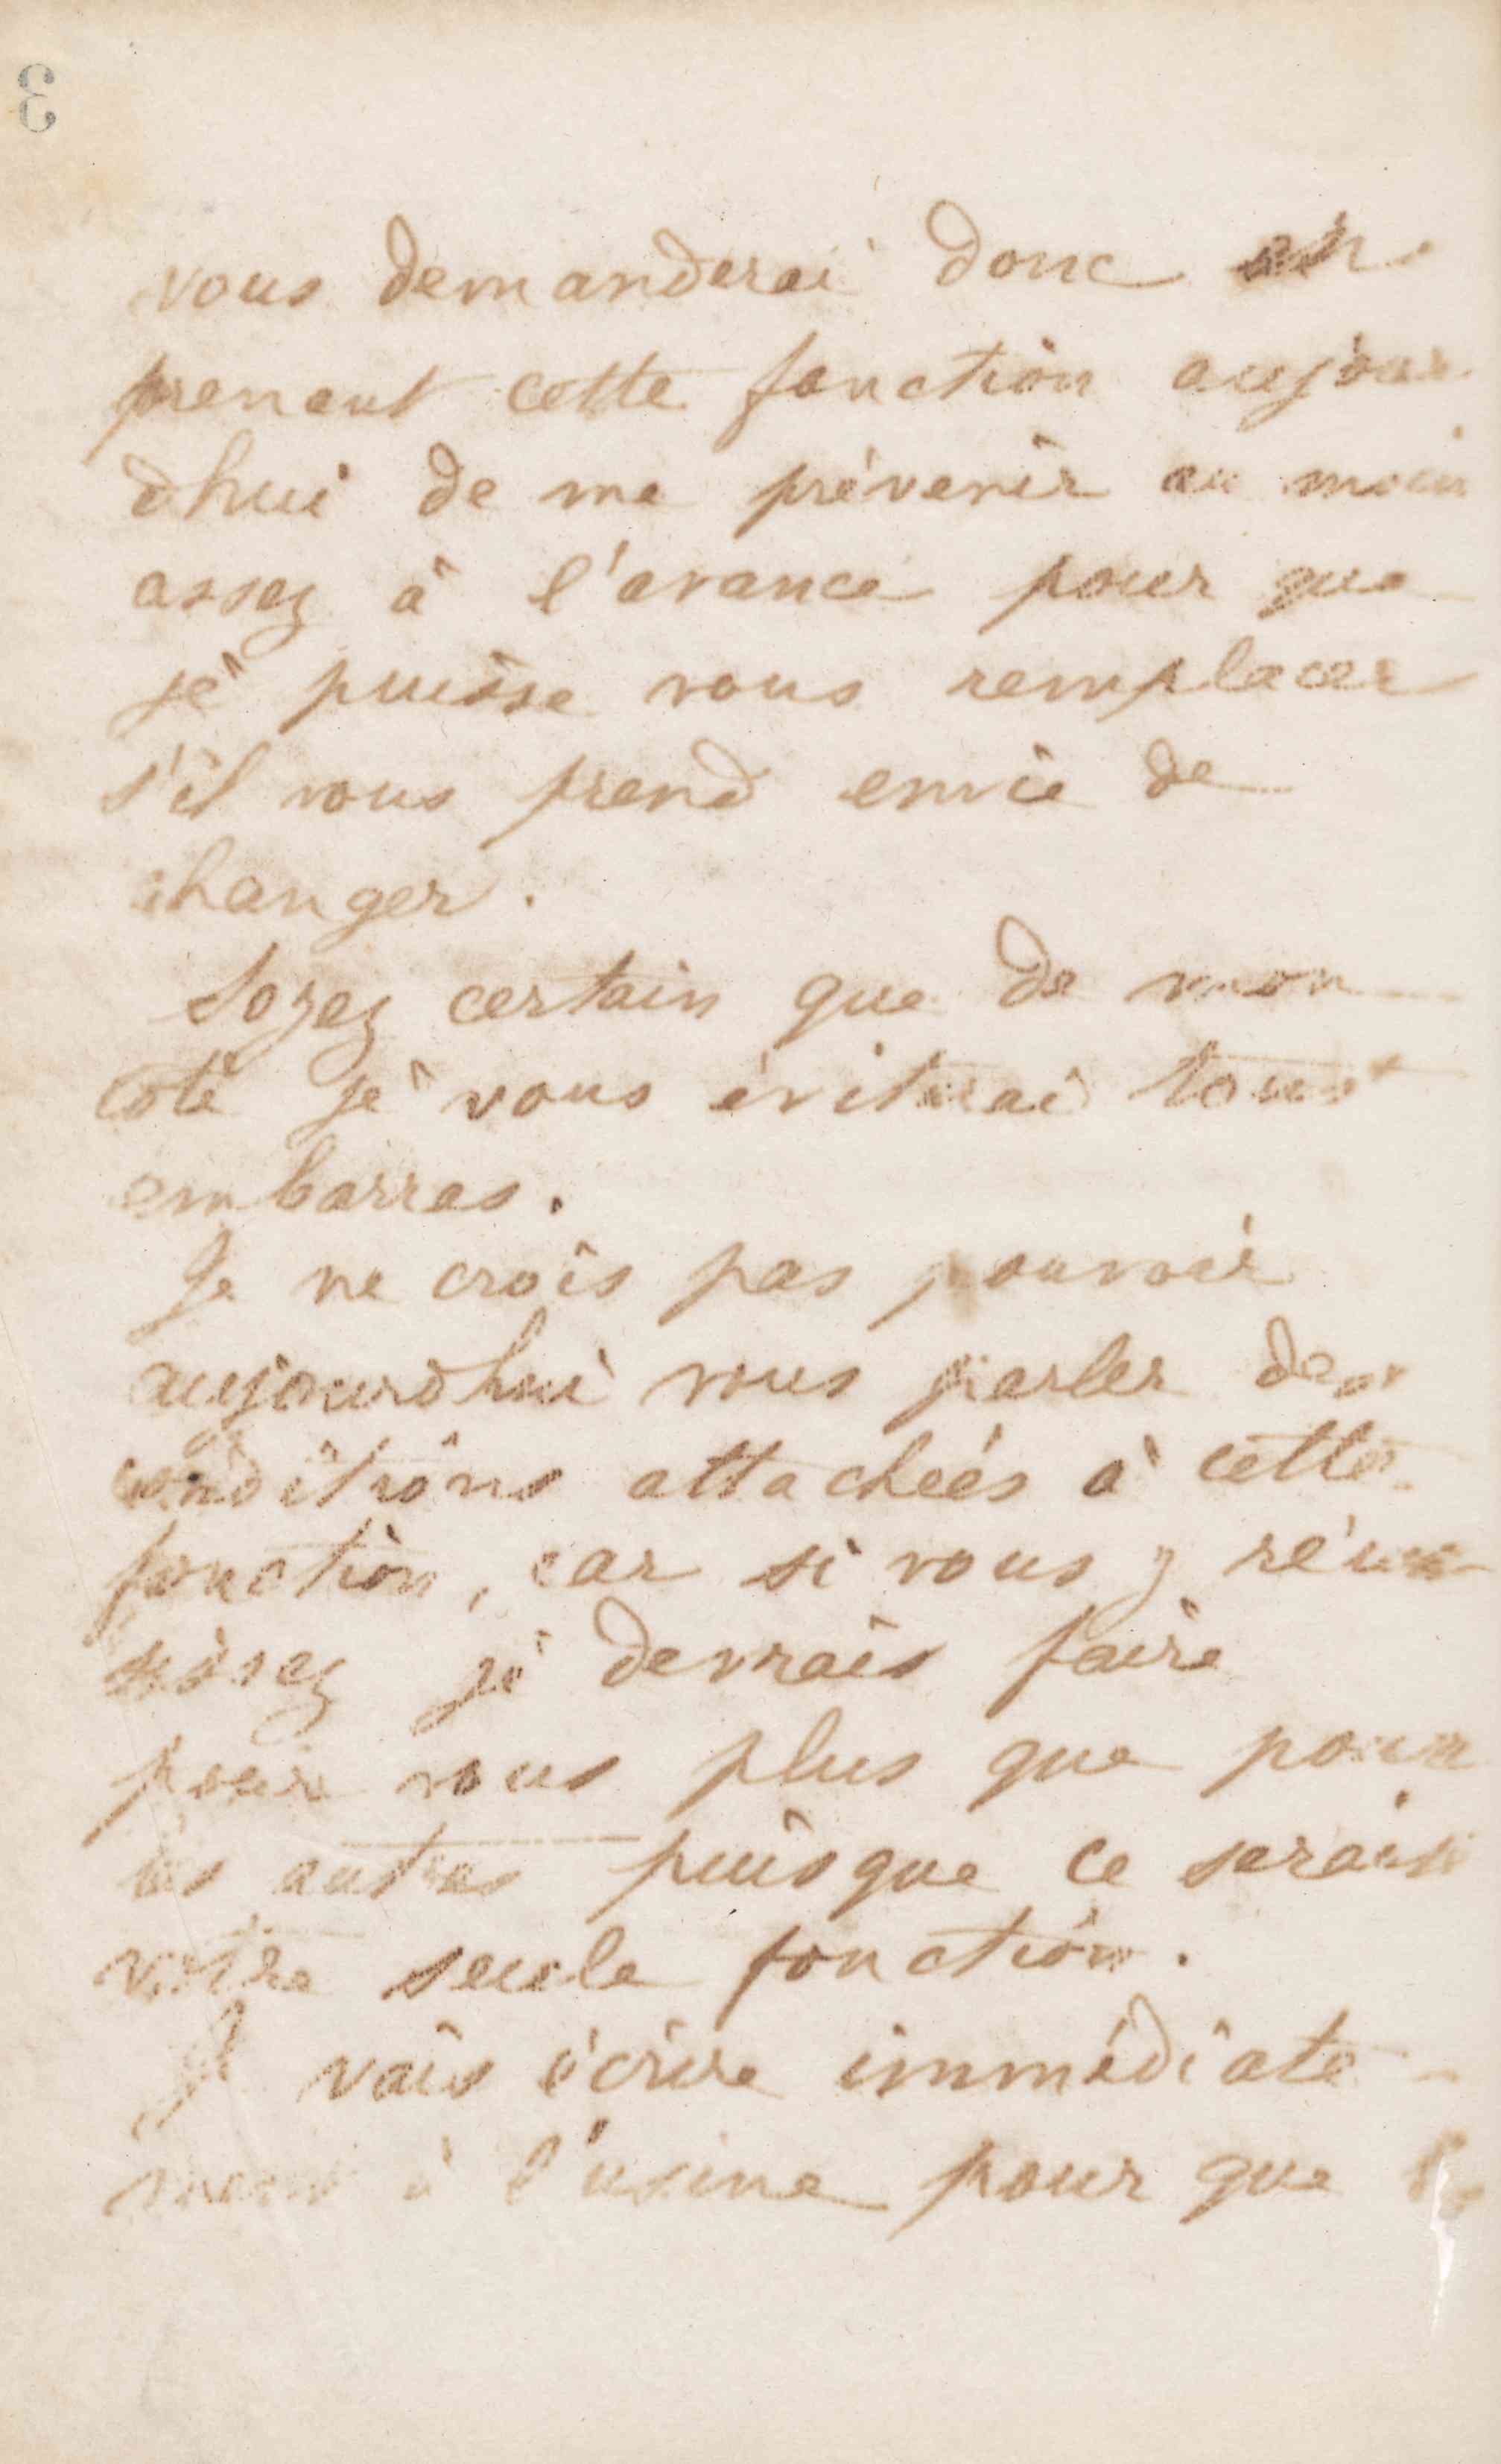 3
vous demanderai donc en
prenant cette fonction aujour
dhui de me prévenir au moins
assez à l'avance pour que
je puisse vous remplacer
s'il vous prend envie de
changer.
Soyez certain que de mon
coté je vous éviterai tout
embarras.
Je ne crois pas pouvoir
aujourdhui vous parler des
conditions attachées à cette
fonction, car si vous y réus
sissez je devrais faire
pour vous plus que pour
les autres puisque ce serait
votre seule fonction.
Je vais écrire immédiate-
ment à l'usine pour que